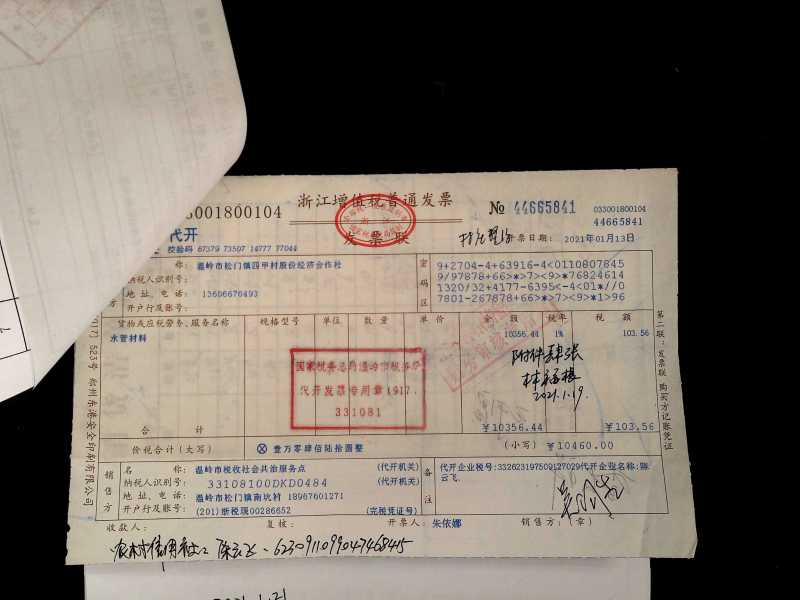 浙江增值税普通发票
发票联
3001800104
№ 44665841
033001800104
44665841
代开
校验码 67379 73507 14777 77044
开票日期: 2021年01月13日
名 称: 温岭市松门镇四甲村股份经济合作社
纳税人识别号:
地 址、电 话: 13606676493
开户行及账号:
密码区
9+2704-4+63916-4<0110807845
9/97878+66>*>7><9>*76824614
1320/32+4177-6395<-4<01*//0
7801-267878+66>*>7><9>1>96
货物或应税劳务、服务名称 规格型号 单位 数量 单价 金额 税率 税额
水管材料 10356.44 1% 103.56
附件肆张
林福根
2021.1.19.
国家税务总局温岭市税务局
代开发票专用章1917.
331081
合计 ¥10356.44 ¥103.56
价税合计(大写) ⊗ 壹万零肆佰陆拾圆整 (小写) ¥10460.00
销售方
名 称: 温岭市税收社会共治服务点 (代开机关)
纳税人识别号: 33108100DKD0484 (代开机关)
地 址、电 话: 温岭市松门镇南坑村 18967601271
开户行及账号: (201)浙税现00286652 (完税凭证号)
备注
代开企业税号:332623197509127029代开企业名称:陈
云飞.
收款人: 复核: 开票人: 朱依娜 销售方:(章)
农村信用社: 陈云飞. 6230911099047468415
第二联:发票联 购买方记账凭证
017〕523号 郑州东港安全印刷有限公司
2021.1.21